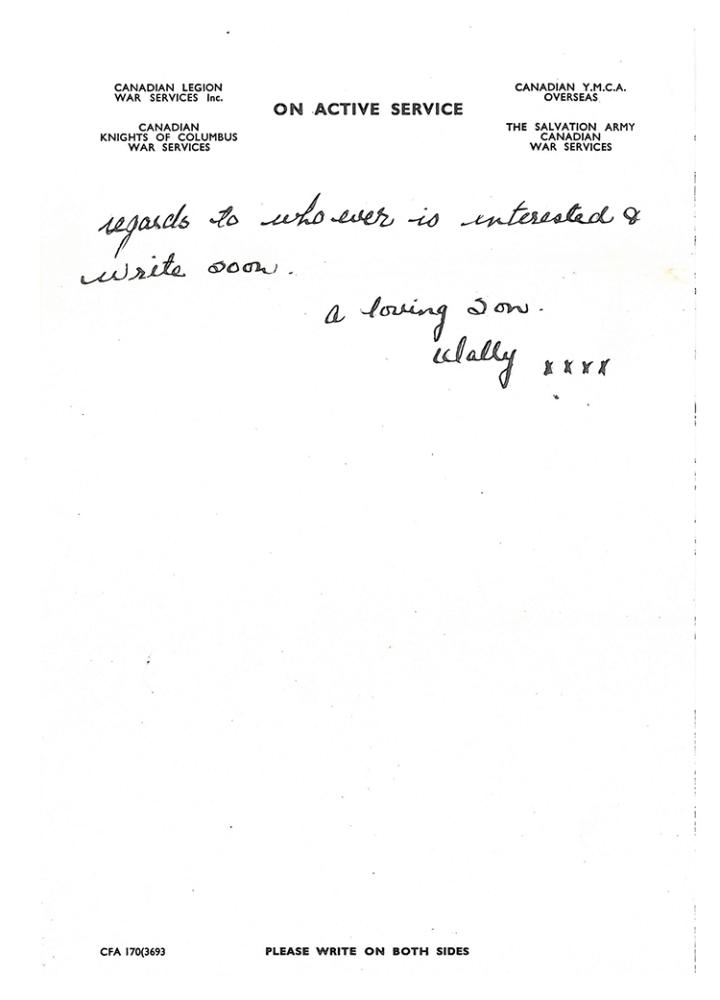 CANADIAN LEGION
WAR SERVICES Inc.
CANADIAN
KNIGHTS OF COLUMBUS
WAR SERVICES
ON ACTIVE SERVICE
CANADIAN Y.M.C.A.
OVERSEAS
THE SALVATION ARMY
CANADIAN
WAR SERVICES
regards to who ever is interested &
write soon.
a loving Son.
Wally xxxx
CFA 170(3693
PLEASE WRITE ON BOTH SIDES